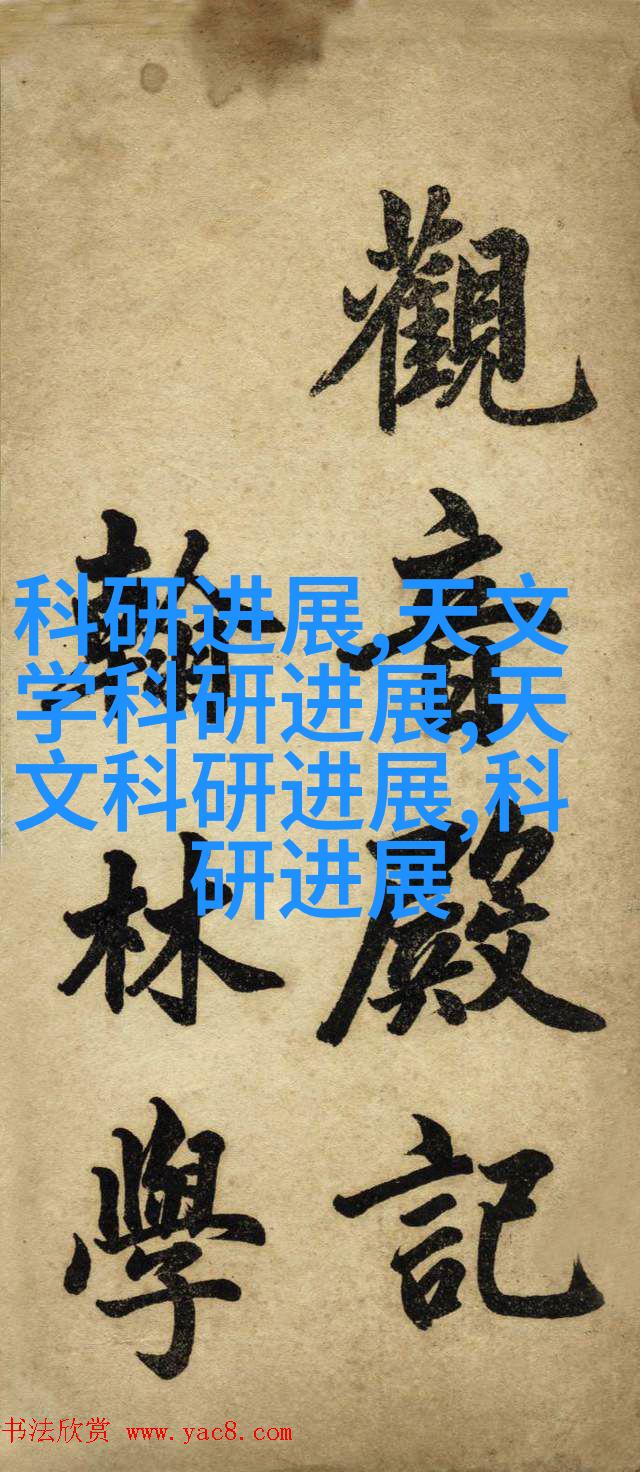 觀音殿記
翰林學
科研进展,天文
学科研进展,天
文科研进展,科
研进展
书法欣赏 www.yac8.com